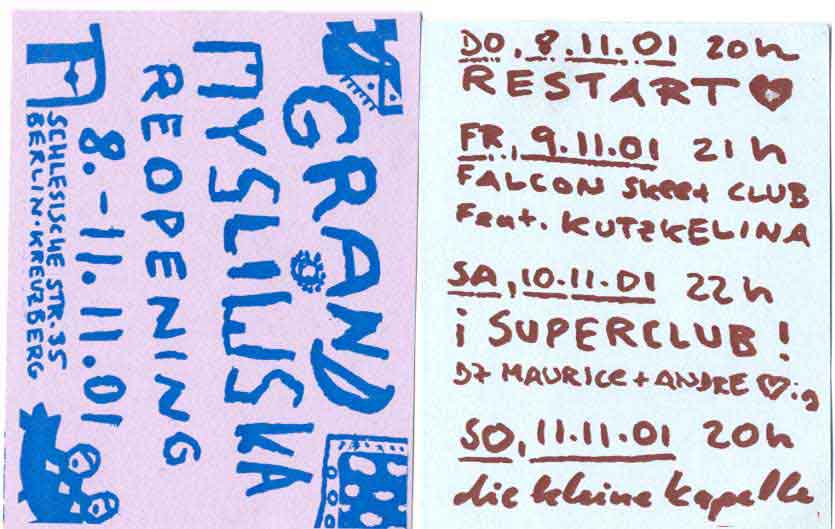 GRAND
MYSLIWSKA
REOPENING
8.-11.11.01
SCHLESISCHE STR. 35
BERLIN-KREUZBERG
DO, 8.11.01 20h
RESTART
FR, 9.11.01 21h
FALCON Skeet CLUB
Feat. KUTZKELINA
SA, 10.11.01 22h
¡ SUPERCLUB!
DJ MAURICE + ANDRE
SO, 11.11.01 20h
die kleine Kapelle